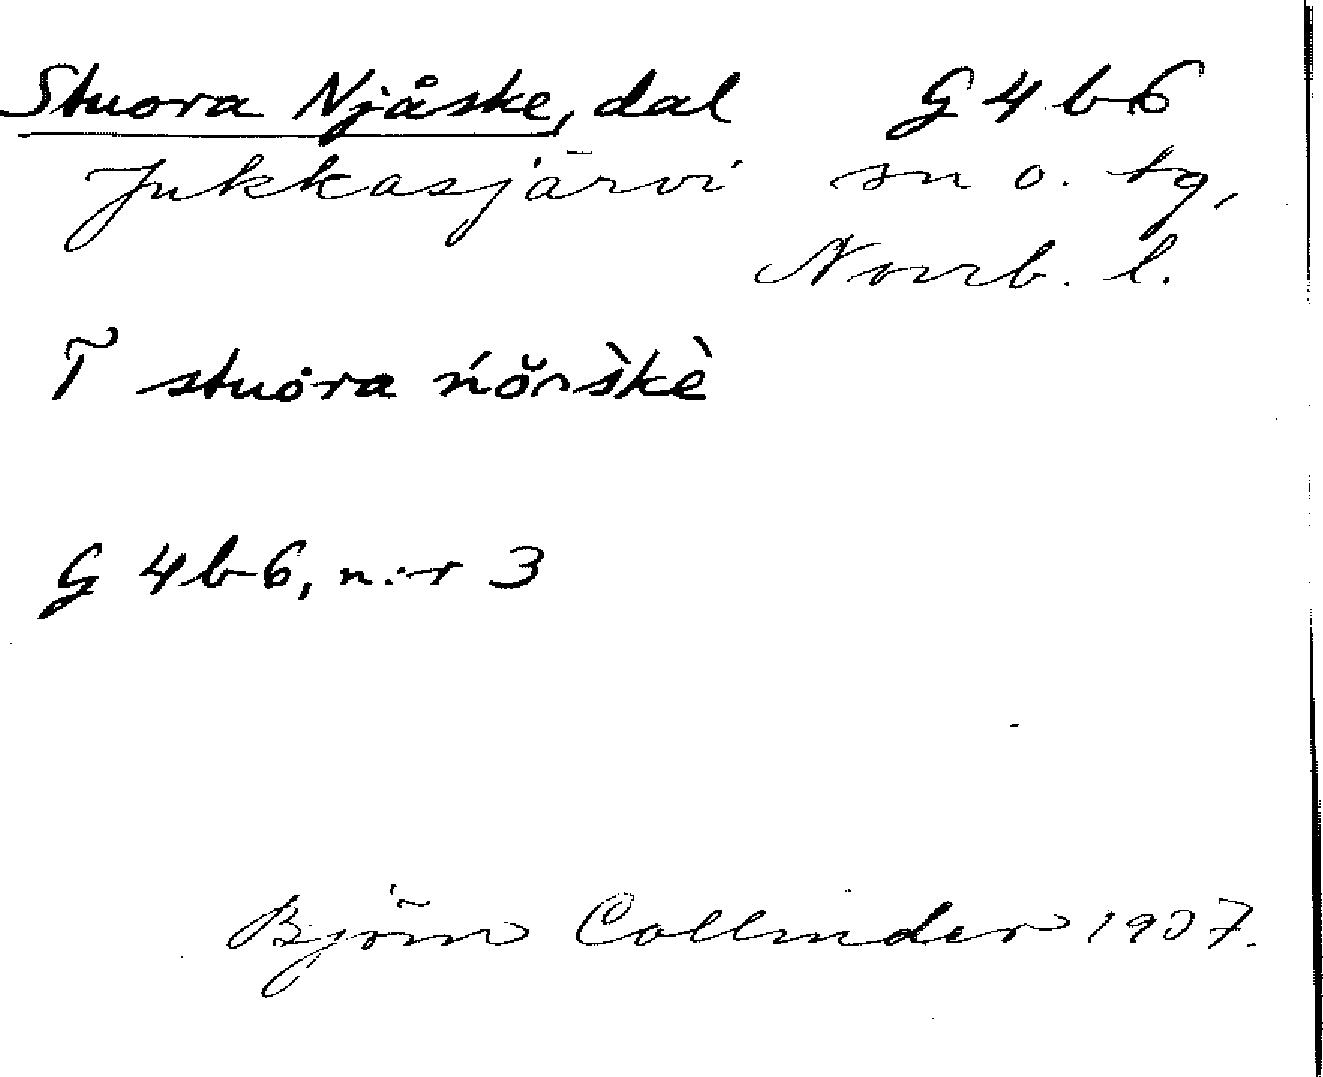 Stuora Njåske, dal G 4 b 6
Jukkasjärvi sn o. tg,
Norrb. l.
T̃ stuȯra ńŏ̀ʌš̀kè
G 4 b 6, n:r 3
Björn Collinder 1907.